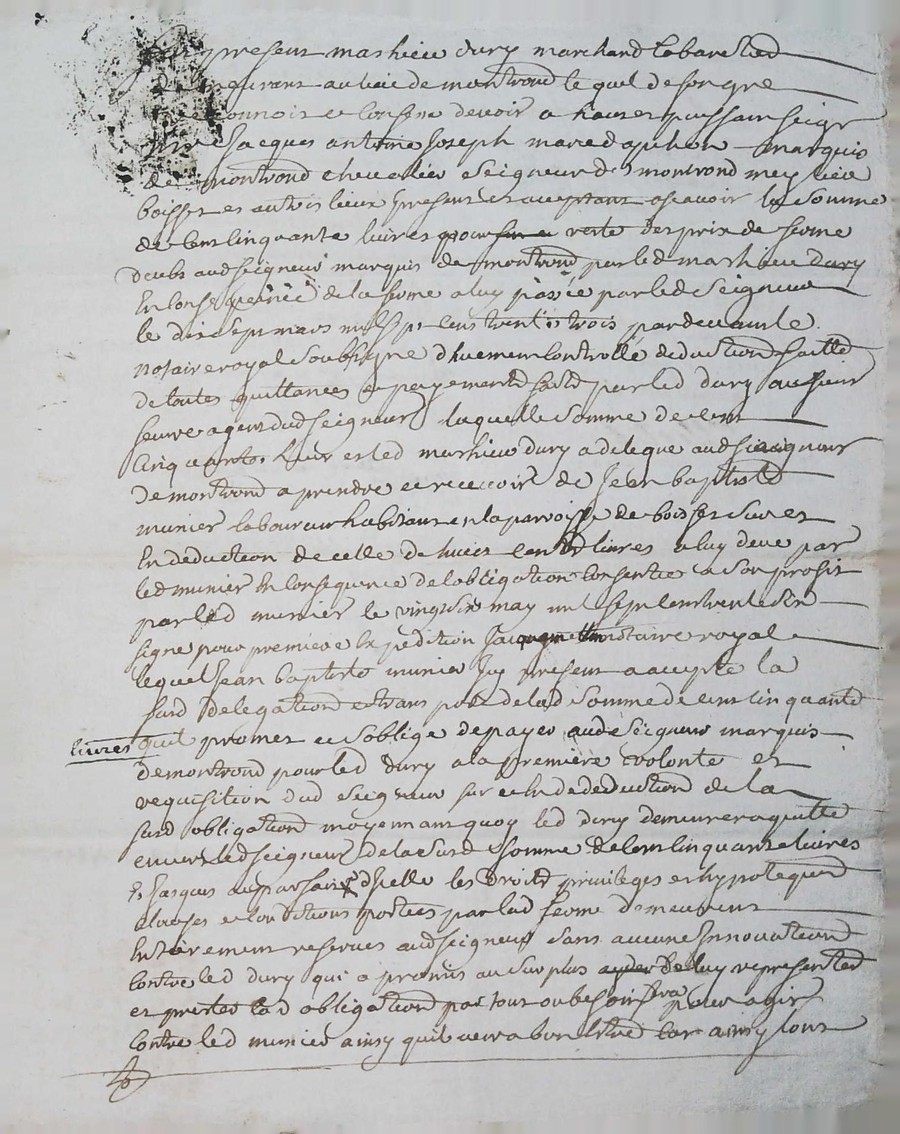 present mathieu dury marchand Cabaretier
demeurant au lieu de montrond lequel de son gre
reconnois et Confesse devoir a haut et puissant seigr
mre Jacques antoine Joseph marquis
de montrond chevallier Seigneur de montrond meylieu
boisset et autres lieux present et acceptant ascavoir la Somme
de Cent Cinquante livres pour reste des prix de ferme
deubs aud seigneur marquis de montrond par led mathieu dury
En Consequence de la ferme a luy passée par led Seigneur
le dix sept mars mil sept cent trente trois pardevant le
notaire royal Soubsigne dhuement Controllé deduction faitte
de toutes quittances et payements faits par led dury au sieur
agent dud seigneur laquelle somme de cent
Cinquante livres led mathieu dury a delegue aud seigneur
de montrond a prendre et recevoir de Jean baptiste
munier laboureur habitant en la paroisse de boisset Sur et
En deduction de celle de huict cents livres a luy deue par
led munier En Consequence de lobligation Consentie a son profit
par led munier le vingt six may mil sept cent trente six
signe pour premiere Expedition notaire royal
lequel Jean baptiste munier Icy present a accepte la
susd delegation et transport de lad Somme de cent Cinquante
livres quil promet et soblige de payer aud Seigneur marquis
de montrond pour led dury a la premiere volonte et
requisition dud seigneur sur et En deduction de la
susd obligation moyennant quoy led dury demeurera quitte
envers led seigneur de la susd somme de Cent Cinquante livres
et Jusques au parfait dIcelle les droits privileges et hypoteques
Clauses et Conditions portees par lad ferme demeurent
Entierement reserves aud seigneur sans aucune Innovation
Contre led dury qui a promis au surplus de luy representer
et prester lad obligation par tout ou besoin sera pour agir
Contre led munier ainsy quil verra bon Car ainsy lont